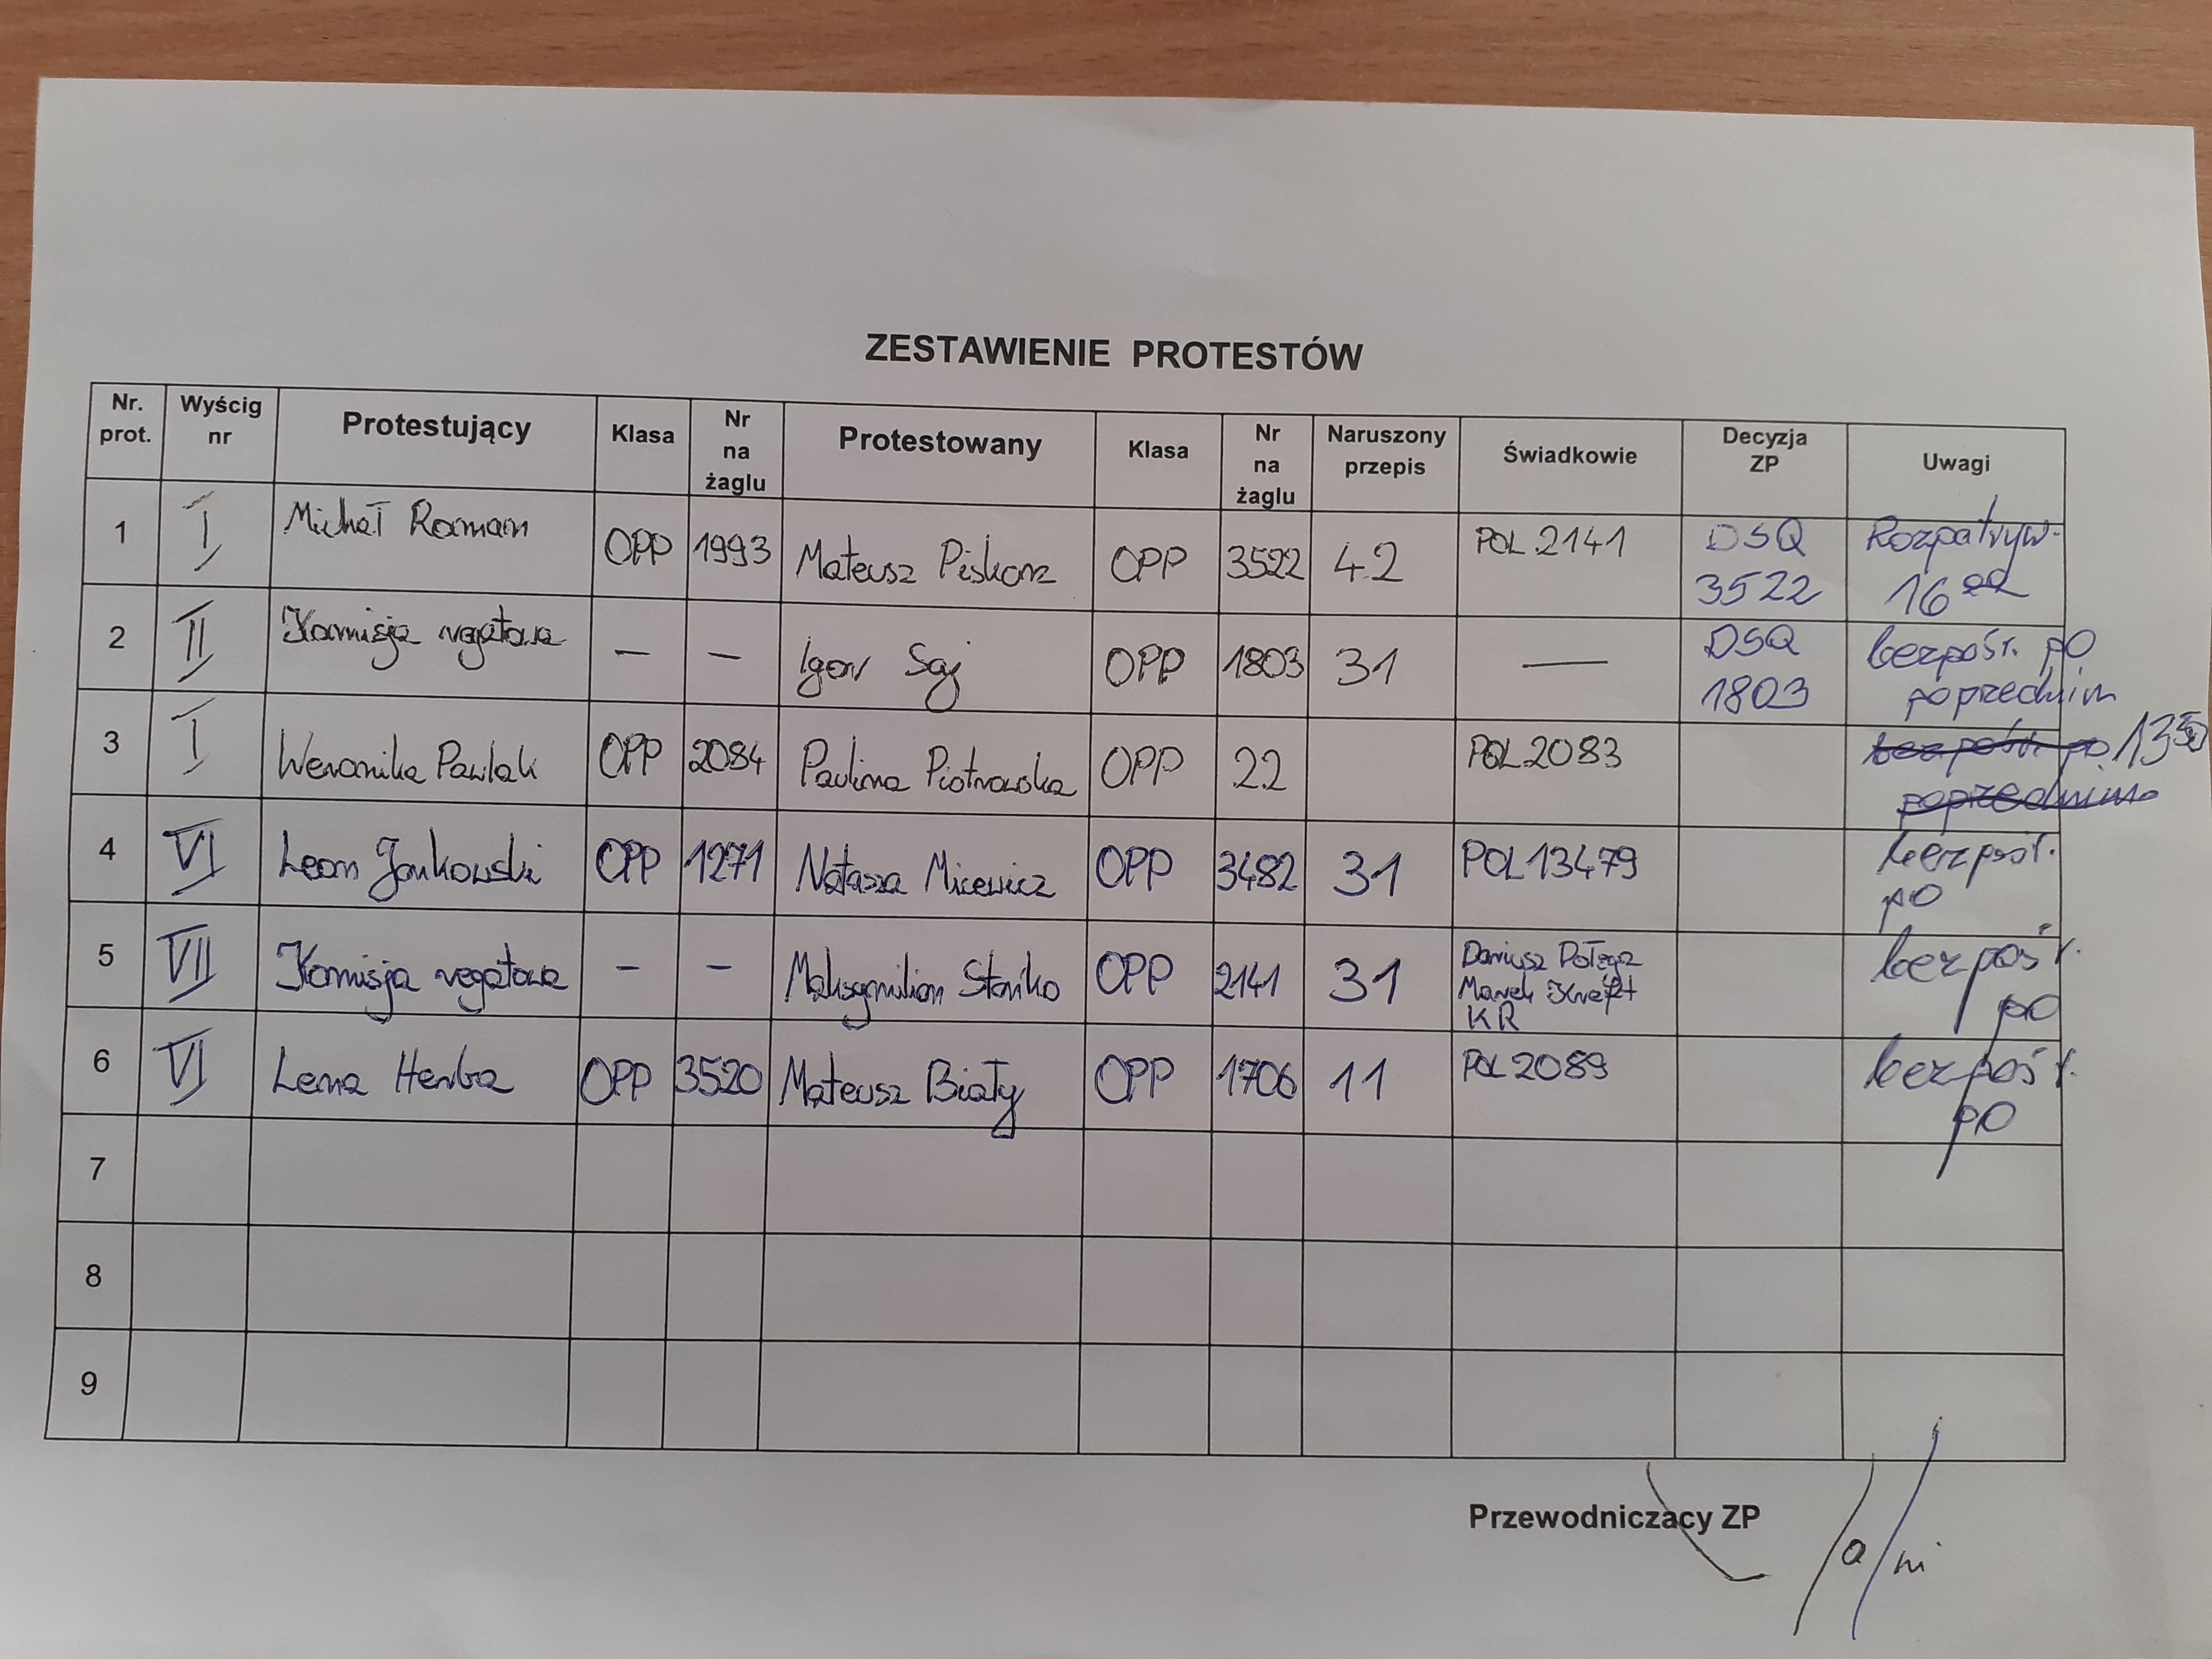 ZESTAWIENIE PROTESTÓW
Nr. prot. Wyścig nr Protestujący Klasa Nr na żaglu Protestowany Klasa Nr na żaglu Naruszony przepis Świadkowie Decyzja ZP Uwagi
1 I Michał Roman OPP 1993 Mateusz Piskorz OPP 3522 42 POL 2141 DSQ 3522 Rozpatryw. 16 00
2 II Komisja regatowa — — Igor Saj OPP 1803 31 — DSQ 1803 bezpośr. po poprzednim
3 I Weronika Pawlak OPP 2084 Paulina Piotrowska OPP 22 POL 2083 bezpośr. po poprzednim 13 50
4 VI Leon Jankowski OPP 1271 Natasza Micewicz OPP 3482 31 POL 13479 bezpośr. po
5 VII Komisja regatowa - - Maksymilian Stańko OPP 2141 31 Dariusz Potęga Marek KR bezpośr. po
6 VI Lena Herba OPP 3520 Mateusz Biały OPP 1706 11 POL 2089 bezpośr. po
7
8
9
Przewodniczący ZP